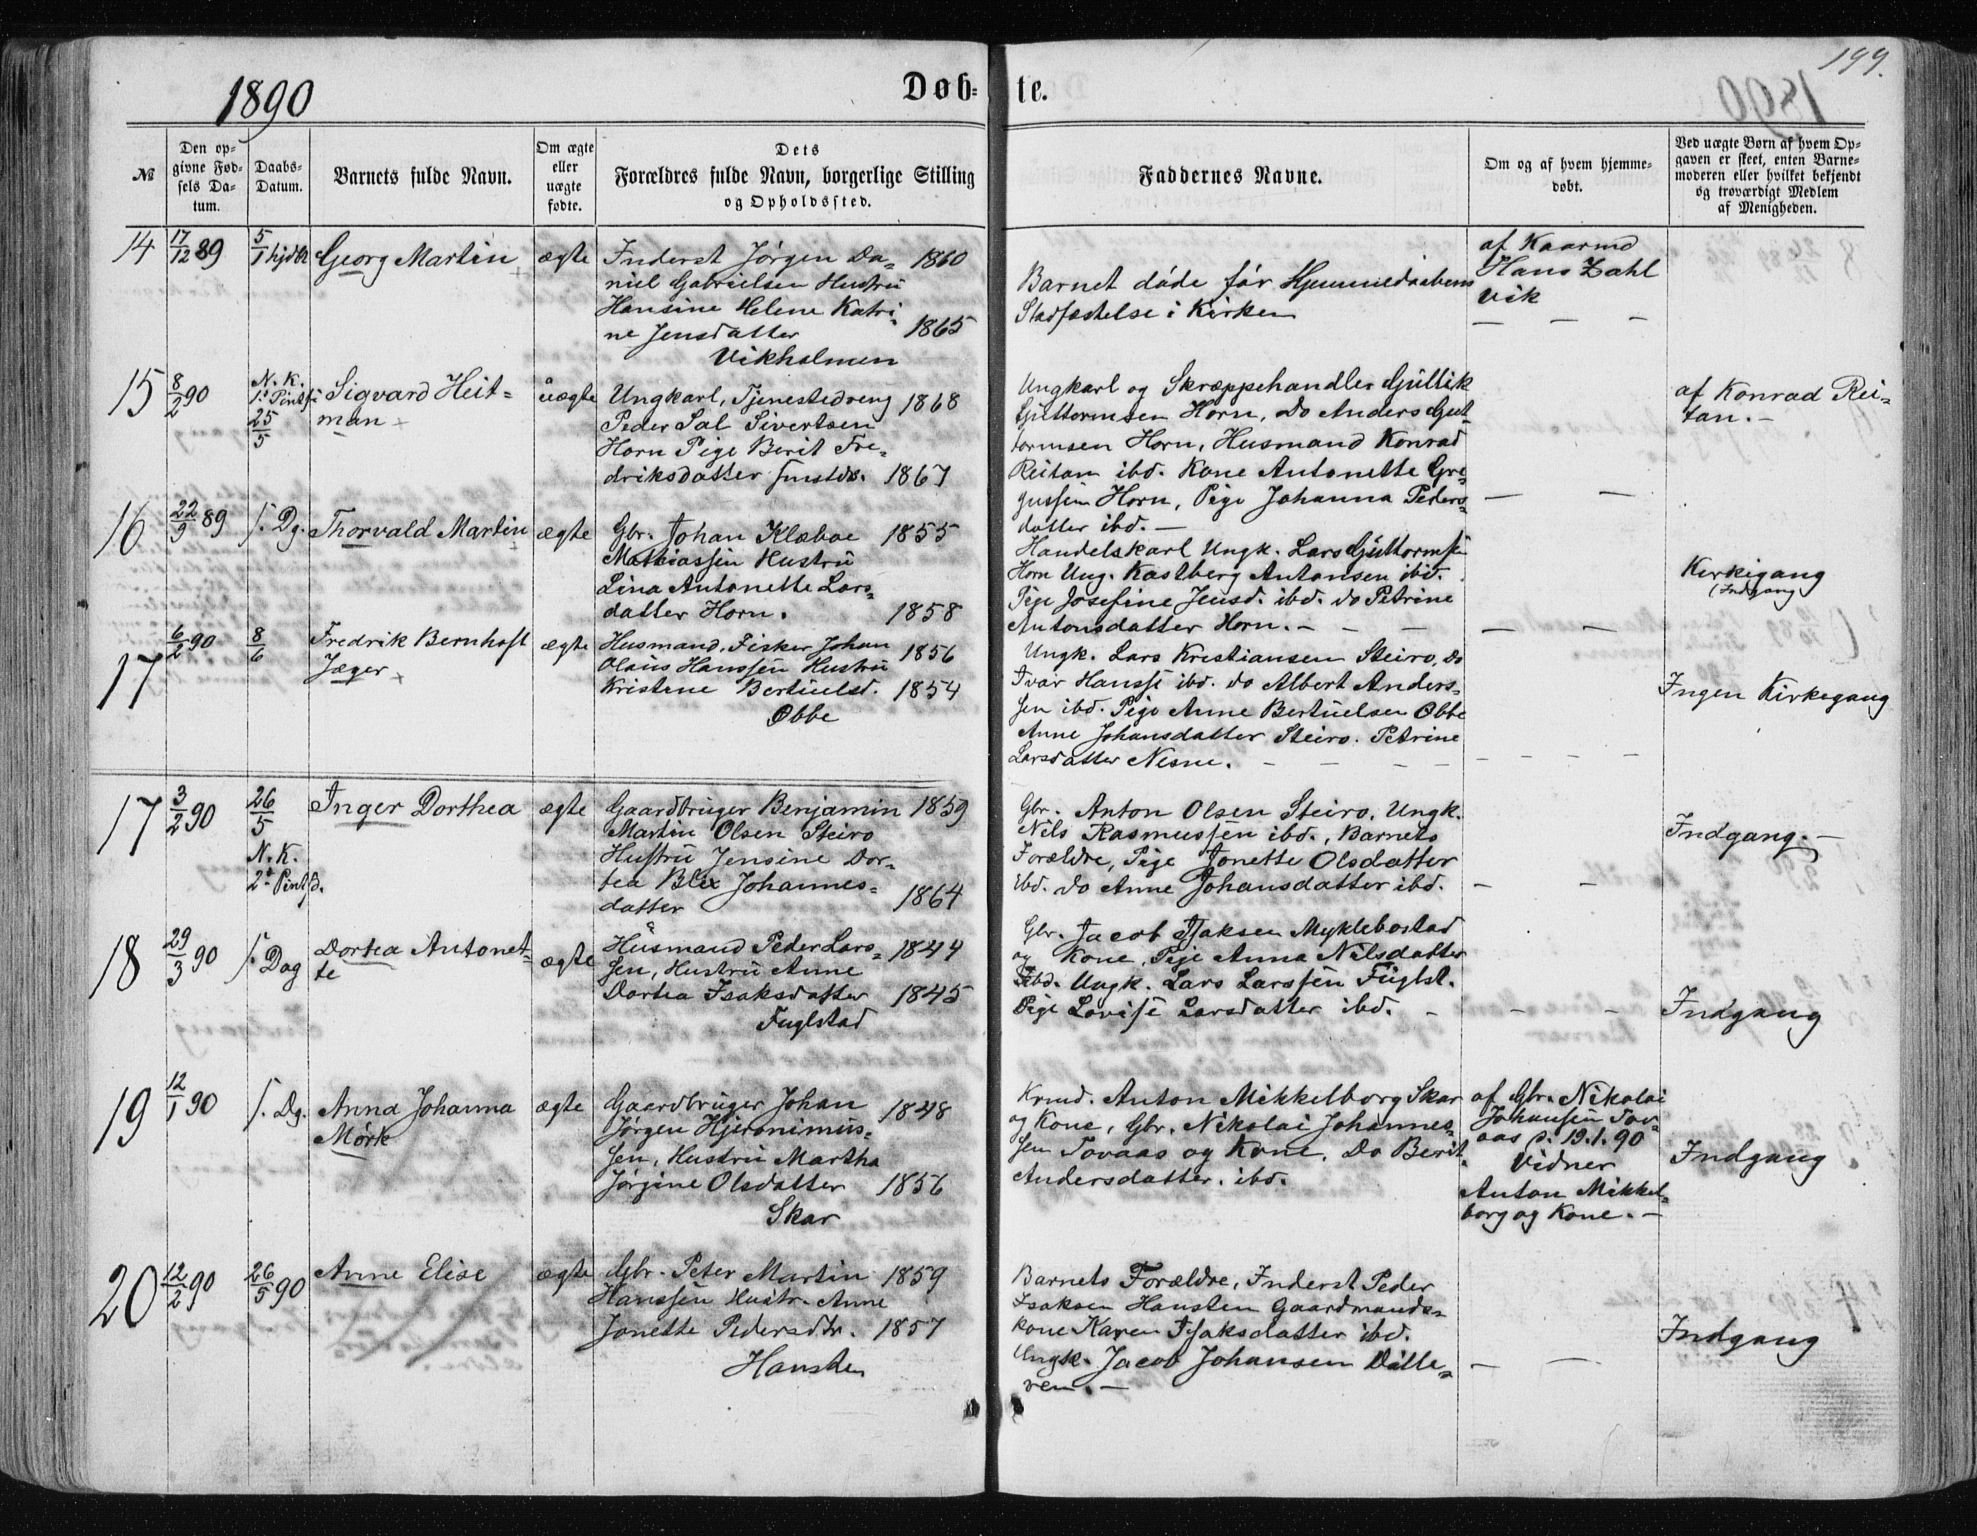 1890
Døb-
te.
199.
№
Den op-
givne Fød-
sels Da-
tum.
Daabs-
Datum.
Barnets fulde Navn.
Om ægte
eller
uægte
fødte.
Dets
Forældres fulde Navn, borgerlige Stilling
og Opholdssted.
Faddernes Navne.
Om og af hvem hjemme-
døbt.
Ved uægte Børn af hvem Op-
gaven er skeet, enten Barne-
moderen eller hvilket bekjendt
og troværdigt Medlem
af Menigheden.
14
17/12 89
5/1 hjdbt
Georg Martin
ægte
Inderst Jørgen Da- 1860
niel Gabrielsen Hustru
Hansine Helene Katri-
ne Jensdatter 1865
Vikholmen
Barnet døde før Hjemmedaabens
Stadfæstelse i Kirken
af Kaarmd
Hans Zahl
Vik
15
8/2 90
N. K.
1. Pintsd
25/5
Sigvard Heit-
man
uægte
Ungkarl, Tjenestedreng 1868
Peder Sal Sivertsen
Horn Pige Berit Fre-
driksdatter smstds. 1867
Ungkarl og Skræppehandler Guttik
Guttormsen Horn, Do Anders Gut-
tormsen Horn, Husmand Konrad
Reitan ibd. Kone Antonette Gre-
gussen Horn, Pige Johanna Peders-
datter ibd. —
af Konrad Rei-
tan. —
16
22/9 89
s. Dg.
Thorvald Martin
ægte
Gbr. Johan Klæboe 1855
Mathiassen Hustru
Lina Antonette Lars-
datter Horn. 1858
Handelskarl Ungk. Lars Guttormsen
Horn Ung. Kastberg Antonsen ibid.
Pige Josefine Jensd. ibd. do Petrine
Antonsdatter Horn. —
Kirkigang
(Indgang
17
6/2 90
8/6
Fredrik Bernhoft
Jæger
ægte
Husmand, Fisker Johan 1856
Olaus Hanssen Hustru
Kristene Bertuelsd. 1854
Øbbe
Ungk. Lars Kristiansen Steiro, Do
Ivar Hansse ibd. do Albert Anders-
sen ibd. Pige Anne Bertuelsen Obbe
Anne Johansdatter Steiro. Petrine
Larsdatter Nesne.
Ingen Kirkegang
17
3/2 90
26/5
N. K.
2. Pintsd.
Inger Dorthea
ægte
Gaardbruger Benjamin 1859
Martin Olsen Steiro
Hustru Jensine Dor-
tea Blix Johannes-
datter 1864
Gbr. Anton Olsen Steiro, Ungk.
Nils Rasmussen ibd., Barnets
Forældre, Pige Jonette Olsdatter
ibd. do Anne Johansdatter ibd.
Indgang. —
18
29/3 90
s. Dag
Dortea Antonet-
te
ægte
Husmand Peder Lars- 1844
sen, Hustru Anne
Dortea Isaksdatter 1845
Fuglstad
Gbr. Jacob Isaksen Myklebostad
og Kone, Pige Anna Nilsdatter
ibd. Ungk. Lars Larssen Fuglst.
Pige Lovise Larsdatter ibd.
Indgang
19
12/1 90
s. Dg.
Anna Johanna
Mørk
ægte
Gaardbruger Johan 1848
Jørgen Hjeronimus-
sen, Hustru Martha
Jørgine Olsdatter 1856
Skar
Krmd. Anton Mikkelborg Skar
og Kone, Gbr. Nikolai Johannes-
sen Tovaas og Kone. Do Berit
Andersdatter. ibd.
af Gbr. Nikolai
Johansen Tov-
aas d. 19.1.90
Vidner
Anton Mikkel-
borg og Kone. —
Indgang
20
12/2 90
26/5 90
Anne Elise
ægte
Gbr. Peter Martin 1859
Hanssen Hustr. Anne
Jonette Pedersdtr. 1857
Hansten
Barnets Forældre, Inderst Peder
Isaksen Hansten Gaardmands-
kone Karen Isaksdatter ibd.
Ungk. Jacob Johansen Dalle-
ren. —
Indgang